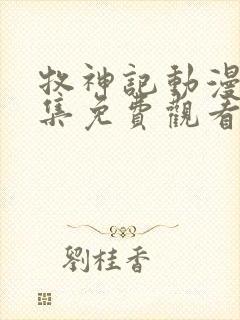 牧神記動漫
集免費觀看
劉桂香